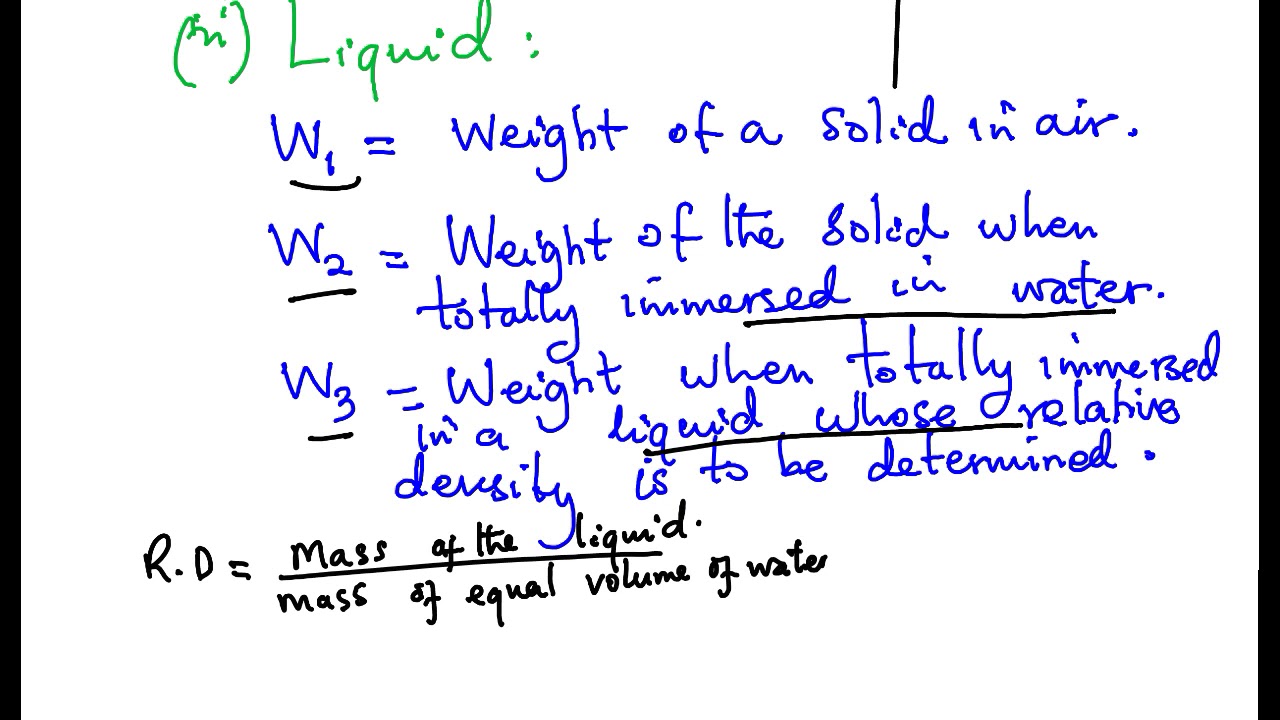 (ii) Liquid :
W₁ = Weight of a solid in air.
W₂ = Weight of the solid when
totally immersed in water.
W₃ = Weight when totally immersed
in a liquid whose relative
density is to be determined.
R.D = Mass of the liquid.
mass of equal volume of water